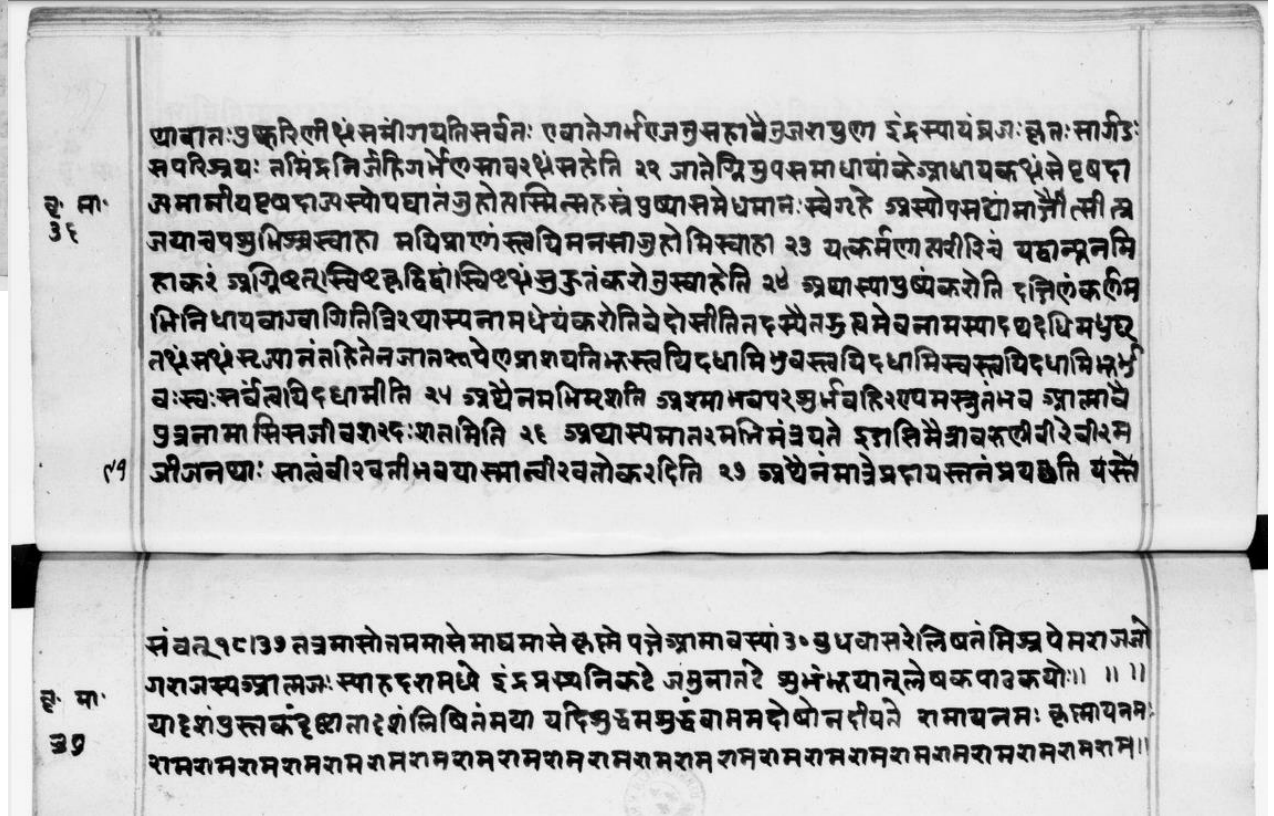 थावातःपुष्करिणीᳪसमींगयतिसर्वतः एवातेगर्भएजतुसहावैतुजरायुणा इंद्रस्यायंव्रजःकृतःसार्गडः
सपरिश्रयः तमिंद्रनिर्जहिगर्भेणसावरᳪसहेति २२ जातेग्निमुपसमाधायांकेआधायकᳪसेपृषदा
बृ॰ मा॰
३६
ज्यमानीयपृषदाज्यस्योपघातंजुहोत्यस्मिन्सहस्रंपुष्यासमेधमानःस्वेगृहे अस्योपसद्यांमाछैत्सीत्प्र
जयाचपशुभिश्चस्वाहा मयिप्राणंस्त्वयिमनसाजुहोमिस्वाहा २३ यत्कर्मणात्यरीरिचं यद्वान्यूनमि
हाकरं अग्निष्टत्स्विष्टकृद्विद्वांस्विष्टᳪसुहुतंकरोतुस्वाहेति २४ अथास्यायुष्यंकरोति दक्षिणंकर्णम
भिनिधायवाग्वागितित्रिरथास्यनामधेयंकरोतिवेदोसीतितदस्यैतद्गुह्यमेवनामस्यादथदधिमधुघृ
तᳪसᳪसृज्यानंतर्हितेनजातरूपेणप्राशयतिभूस्त्वयिदधामिभुवस्त्वयिदधामिस्वस्त्वयिदधामिभूर्भु
वःस्वःसर्वंत्वयिदधामीति २५ अथैनमभिमृशति अश्माभवपरशुर्भवहिरण्यमस्रुतंभव आत्मावै
पुत्रनामासिसजीवशरदःशतमिति २६ अथास्यमातरमभिमंत्रयते इडासिमैत्रावरुणीवीरेवीरम
९१
जीजनथाः सात्वंवीरवतीभवयास्मान्वीरवतोकरदिति २७ अथैनंमात्रेप्रदायस्तनंप्रयछति यस्ते
संवत् १८।३७ तत्रमासोत्तममासेमाघमासेकृष्णेपक्षेआमावस्यां ३० बुधवासरे।लिषतंमिश्र पेमराजजो
गराजस्यआत्मजःस्याहदरामध्ये इंद्रप्रस्थनिकटे जमुनातटे शुभंभूयात्लेषकपाठकयोः॥ ॥ ॥
बृ॰ मा॰
३७
यादृशंपुस्तकंदृष्टातादृशंलिषितंमया यदिशुद्धमशुद्धंवाममदोषोनदीयते रामायनमः कृष्णायनमः
रामरामरामरामरामरामरामरामरामरामरामरामरामरामरामरामरामरामरामरामरामराम॥